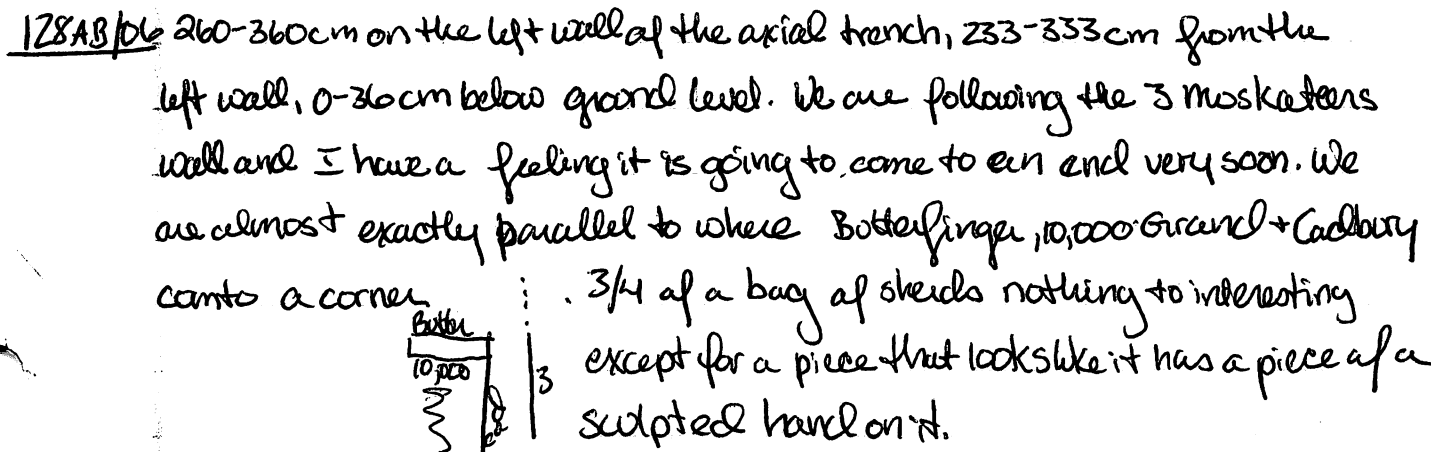 128AB/06 260-360cm on the left wall of the axial trench, 233-333cm from the
left wall, 0-36cm below ground level. We are following the 3 Moskateers
wall and I have a feeling it is going to come to an end very soon. We
are almost exactly parallel to where Butterfinger, 10,000 Grand + Cadbury
camto a corner. 3/4 of a bag of sherds nothing to interesting
Butter
10,000
3
Cad
except for a piece that looks like it has a piece of a
sculpted hand on it.